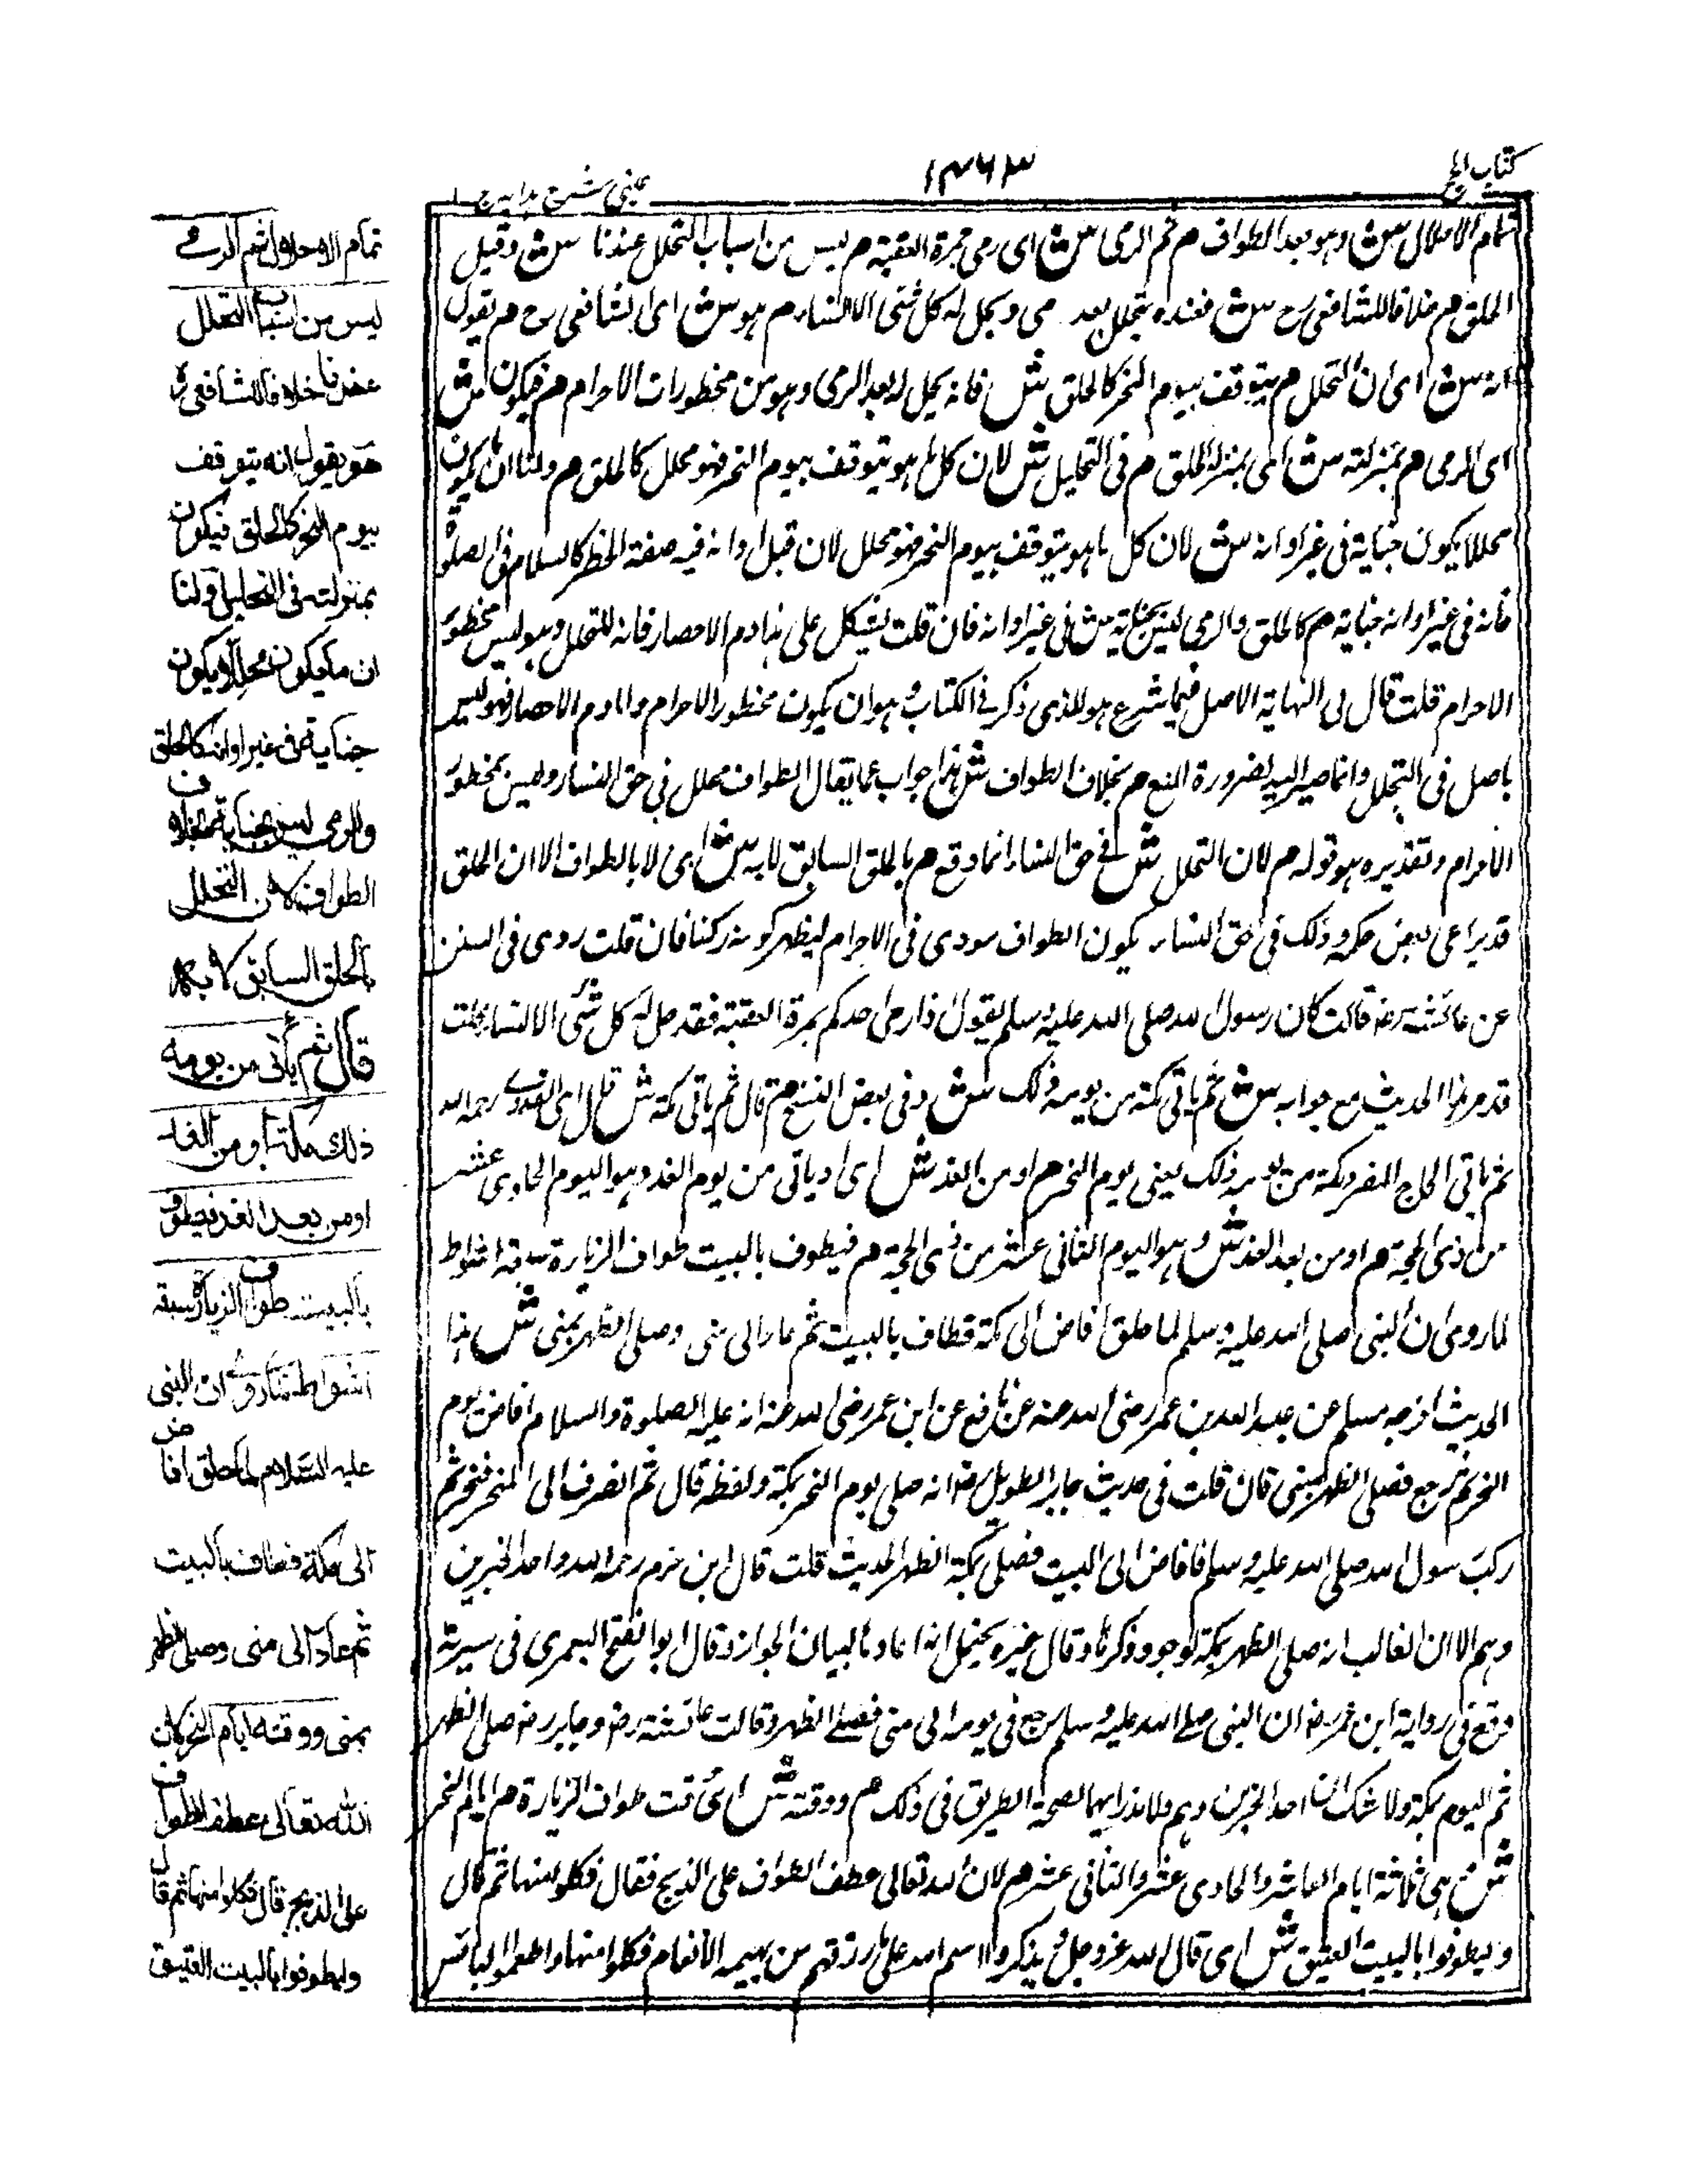 كتاب الحج
١٣٦٣
عینی شرح ہدایہ ج ١
تمام الاحلال ش وهو بعد الطواف م ثم الرمی ش ای رمی جمرة العقبة م لیس من اسباب التحلل عندنا ش وقیل
الحلق م خلافا للشافعی رح ش فعنده یتحلل بعد می ویحل له كل شئ الا النساء م هو ش ای الشافعی رح م یقول
انه ش ای ان التحلل م یتوقف بیوم النحر كالحلق ش فانه یحل له بعد الرمی وهو من محظورات الاحرام م فیكون ش
ای الرمی م بمنزلته ش ای بمنزلة الحلق م فی التحلیل ش لان كل ما هو یتوقف بیوم النحر فهو محلل كالحلق م ولنا ان ما یكون
محللا یكون جنایة فی غیر اوانه ش لان كل ما هو یتوقف بیوم النحر فهو محلل لان قبل اوانه فیه صفة الحظر كالسلام فی الصلوة
فانه فی غیر اوانه جنایة م كالحلق والرمی لیس بجنایة ش فی غیر اوانه فان قلت یشكل علی هذا دم الاحصار فانه للتحلل وهو لیس محظور
الاحرام قلت قال فی النهایة الاصل فیما شرع هو الذی ذكر فی الكتاب وهو ان یكون محظور الاحرام واما دم الاحصار فهو لیس
باصل فی التحلل وانما صیر الیه لضرورة المنع م بخلاف الطواف ش هذا جواب عما یقال الطواف محلل فی حق النساء ولیس بمحظور
الاحرام وتقدیره هو قوله م لان التحلل ش فی حق النساء انما وقع م بالحلق السابق لا به ش ای لا بالطواف الا ان الحلق
بعض حكمه وذلك فی حق النساء یكون الطواف مودی فی الاحرام لیظهر كونه ركنا فان قلت روی فی السنن
عن عائشة رض قالت كان رسول الله صلی الله علیه وسلم یقول اذا رمی احدكم جمرة العقبة فقد حل له كل شئ الا النساء قلت
قد مر هذا الحدیث مع جوابه ش ثم یاتی مكة من یومه ذلك ش وفی بعض النسخ م قال ثم یاتی مكة ش قال ای القدوری رحمه الله
ثم یاتی الحاج المفرد مكة من یومه ذلك یعنی یوم النحر م او من الغد ش ای او یاتی من یوم الغد وهو الیوم الحادی عشر
من ذی الحجة م او من بعد الغد ش وهو الیوم الثانی عشر من ذی الحجة م فیطوف بالبیت طواف الزیارة سبعة اشواط
لما روی ان النبی صلی الله علیه وسلم لما حلق افاض الی مكة فطاف بالبیت ثم عاد الی منی وصلی الظهر بمنی ش هذا
الحدیث اخرجه مسلم عن عبید الله بن عمر رضی الله عنه عن نافع عن ابن عمر رضی الله عنه انه علیه الصلوة والسلام افاض یوم
النحر ثم رجع فصلی الظهر بمنی فان قلت فی حدیث جابر الطویل رض انه صلی یوم النحر بمكة ولفظه قال ثم انصرف الی المنحر فنحر ثم
ركب رسول الله صلی الله علیه وسلم فافاض الی البیت فصلی بمكة الظهر الحدیث قلت قال ابن حزم رحمه الله واحد الخبرین
وهم الا ان الغالب انه صلی الظهر بمكة لوجوه ذكرها وقال غیره یحتمل انه اعادها لبیان الجواز وقال ابو الفتح الیعمری فی سیرته
وقع فی روایة ابن عمر رض ان النبی صلی الله علیه وسلم رجع فی یومه الی منی فصلی الظهر وقالت عائشة رض وجابر رض صلی الظهر
ثم الیوم بمكة ولا شك ان احد الخبرین وهم ولا ندری ایهما لصحة الطریق فی ذلك م ووقته ش ای وقت طواف الزیارة م ایام النحر
ش هی ثلاثة ایام العاشر والحادی عشر والثانی عشر م لان الله تعالی عطف الطواف علی الذبح فقال فكلوا منها ثم قال
ولیطوفوا بالبیت العتیق ش ای قال الله عز وجل ویذكروا اسم الله علی ما رزقهم من بهیمة الانعام فكلوا منها واطعموا البائس
تمام الاحلال ثم الرمی
لیس من اسباب التحلل
عندنا خلافا للشافعی رح
هو یقول انه یتوقف
بیوم النحر كالحلق فیكون
بمنزلته فی التحلیل ولنا
ان ما یكون محللا یكون
جنایة فی غیر اوانه كالحلق
والرمی لیس بجنایة بخلاف
الطواف لان التحلل
بالحلق السابق لا به
قال ثم یأتی من یومه
ذلك مكة او من الغد
او من بعد الغد فیطوف
بالبیت طواف الزیارة سبعة
اشواط لما روی ان النبی
علیه السلام لما حلق افاض
الی مكة فطاف بالبیت
ثم عاد الی منی وصلی الظهر
بمنی ووقته ایام النحر لان
الله تعالی عطف الطواف
علی الذبح قال فكلوا منها ثم قال
ولیطوفوا بالبیت العتیق